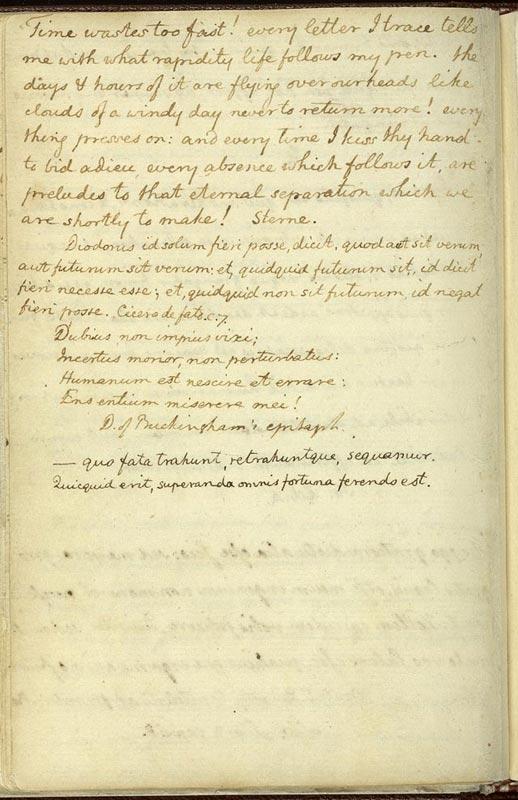 Time wastes too fast! every letter I trace tells
me with what rapidity life follows my pen. the
days & hours of it are flying over our heads like
clouds of a windy day never to return more! every
thing presses on: and every time I kiss thy hand
to bid adieu, every absence which follows it, are
preludes to that eternal separation which we
are shortly to make! Sterne.
Diodorus id solum fieri posse, dicit, quod aut sit verum,
aut futurum sit verum: et, quidquid futurum sit, id dicit
fieri necesse esse; et, quidquid non sit futurum, id negat
fieri posse. Cicero de fato. c. 7.
Dubius non impius vixi;
Incertus morior, non perturbatus:
Humanum est nescire et errare:
Ens entium miserere mei!
D. of Buckingham's epitaph.
— quo fata trahunt, retrahuntque, sequamur.
Quicquid erit, superanda omnis fortuna ferendo est.